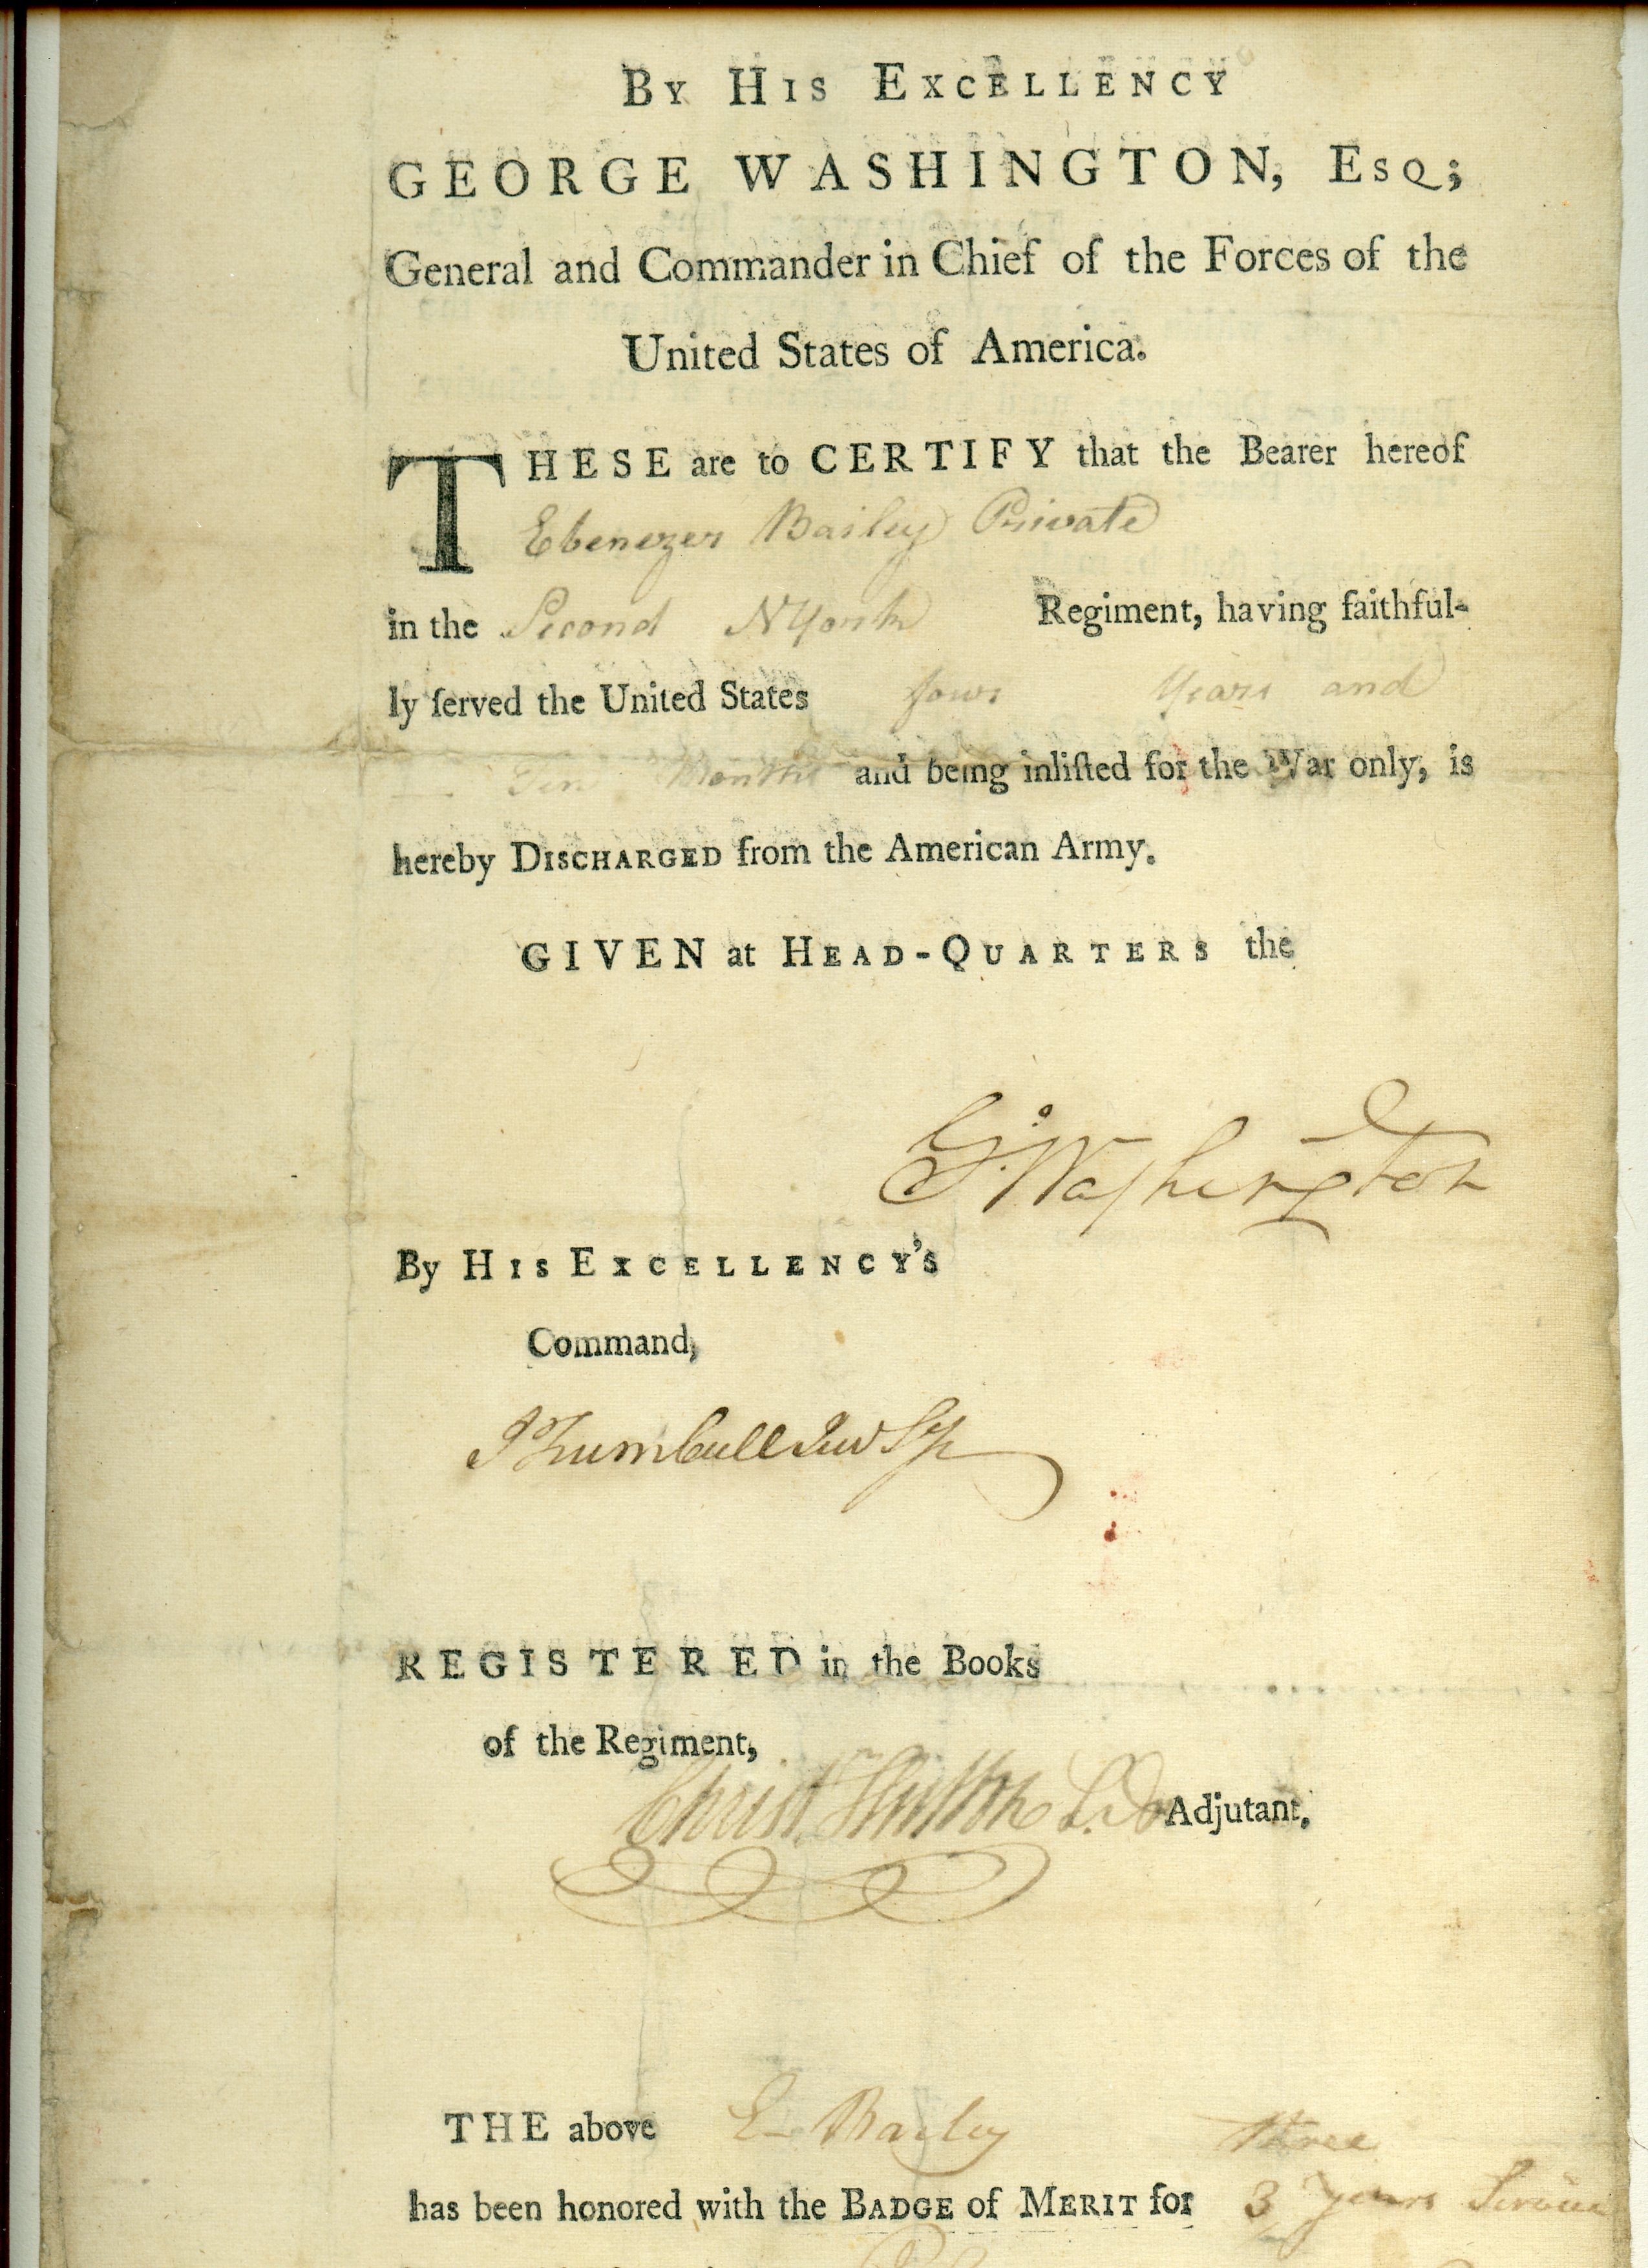 BY HIS EXCELLENCY
GEORGE WASHINGTON, ESQ;
General and Commander in Chief of the Forces of the
United States of America.
THESE are to CERTIFY that the Bearer hereof
Ebenezer Bailey Private
in the Second NYork Regiment, having faithful-
ly ſerved the United States four Years and
Ten Months and being inliſted for the War only, is
hereby DISCHARGED from the American Army.
GIVEN at HEAD-QUARTERS the
G:Washington
By HIS EXCELLENCY'S
Command,
J Trumbull Jun Sy
REGISTERED in the Books
of the Regiment,
Christ. Hutton Adjutant.
THE above E Bailey three
has been honored with the BADGE of MERIT for 3 years Service